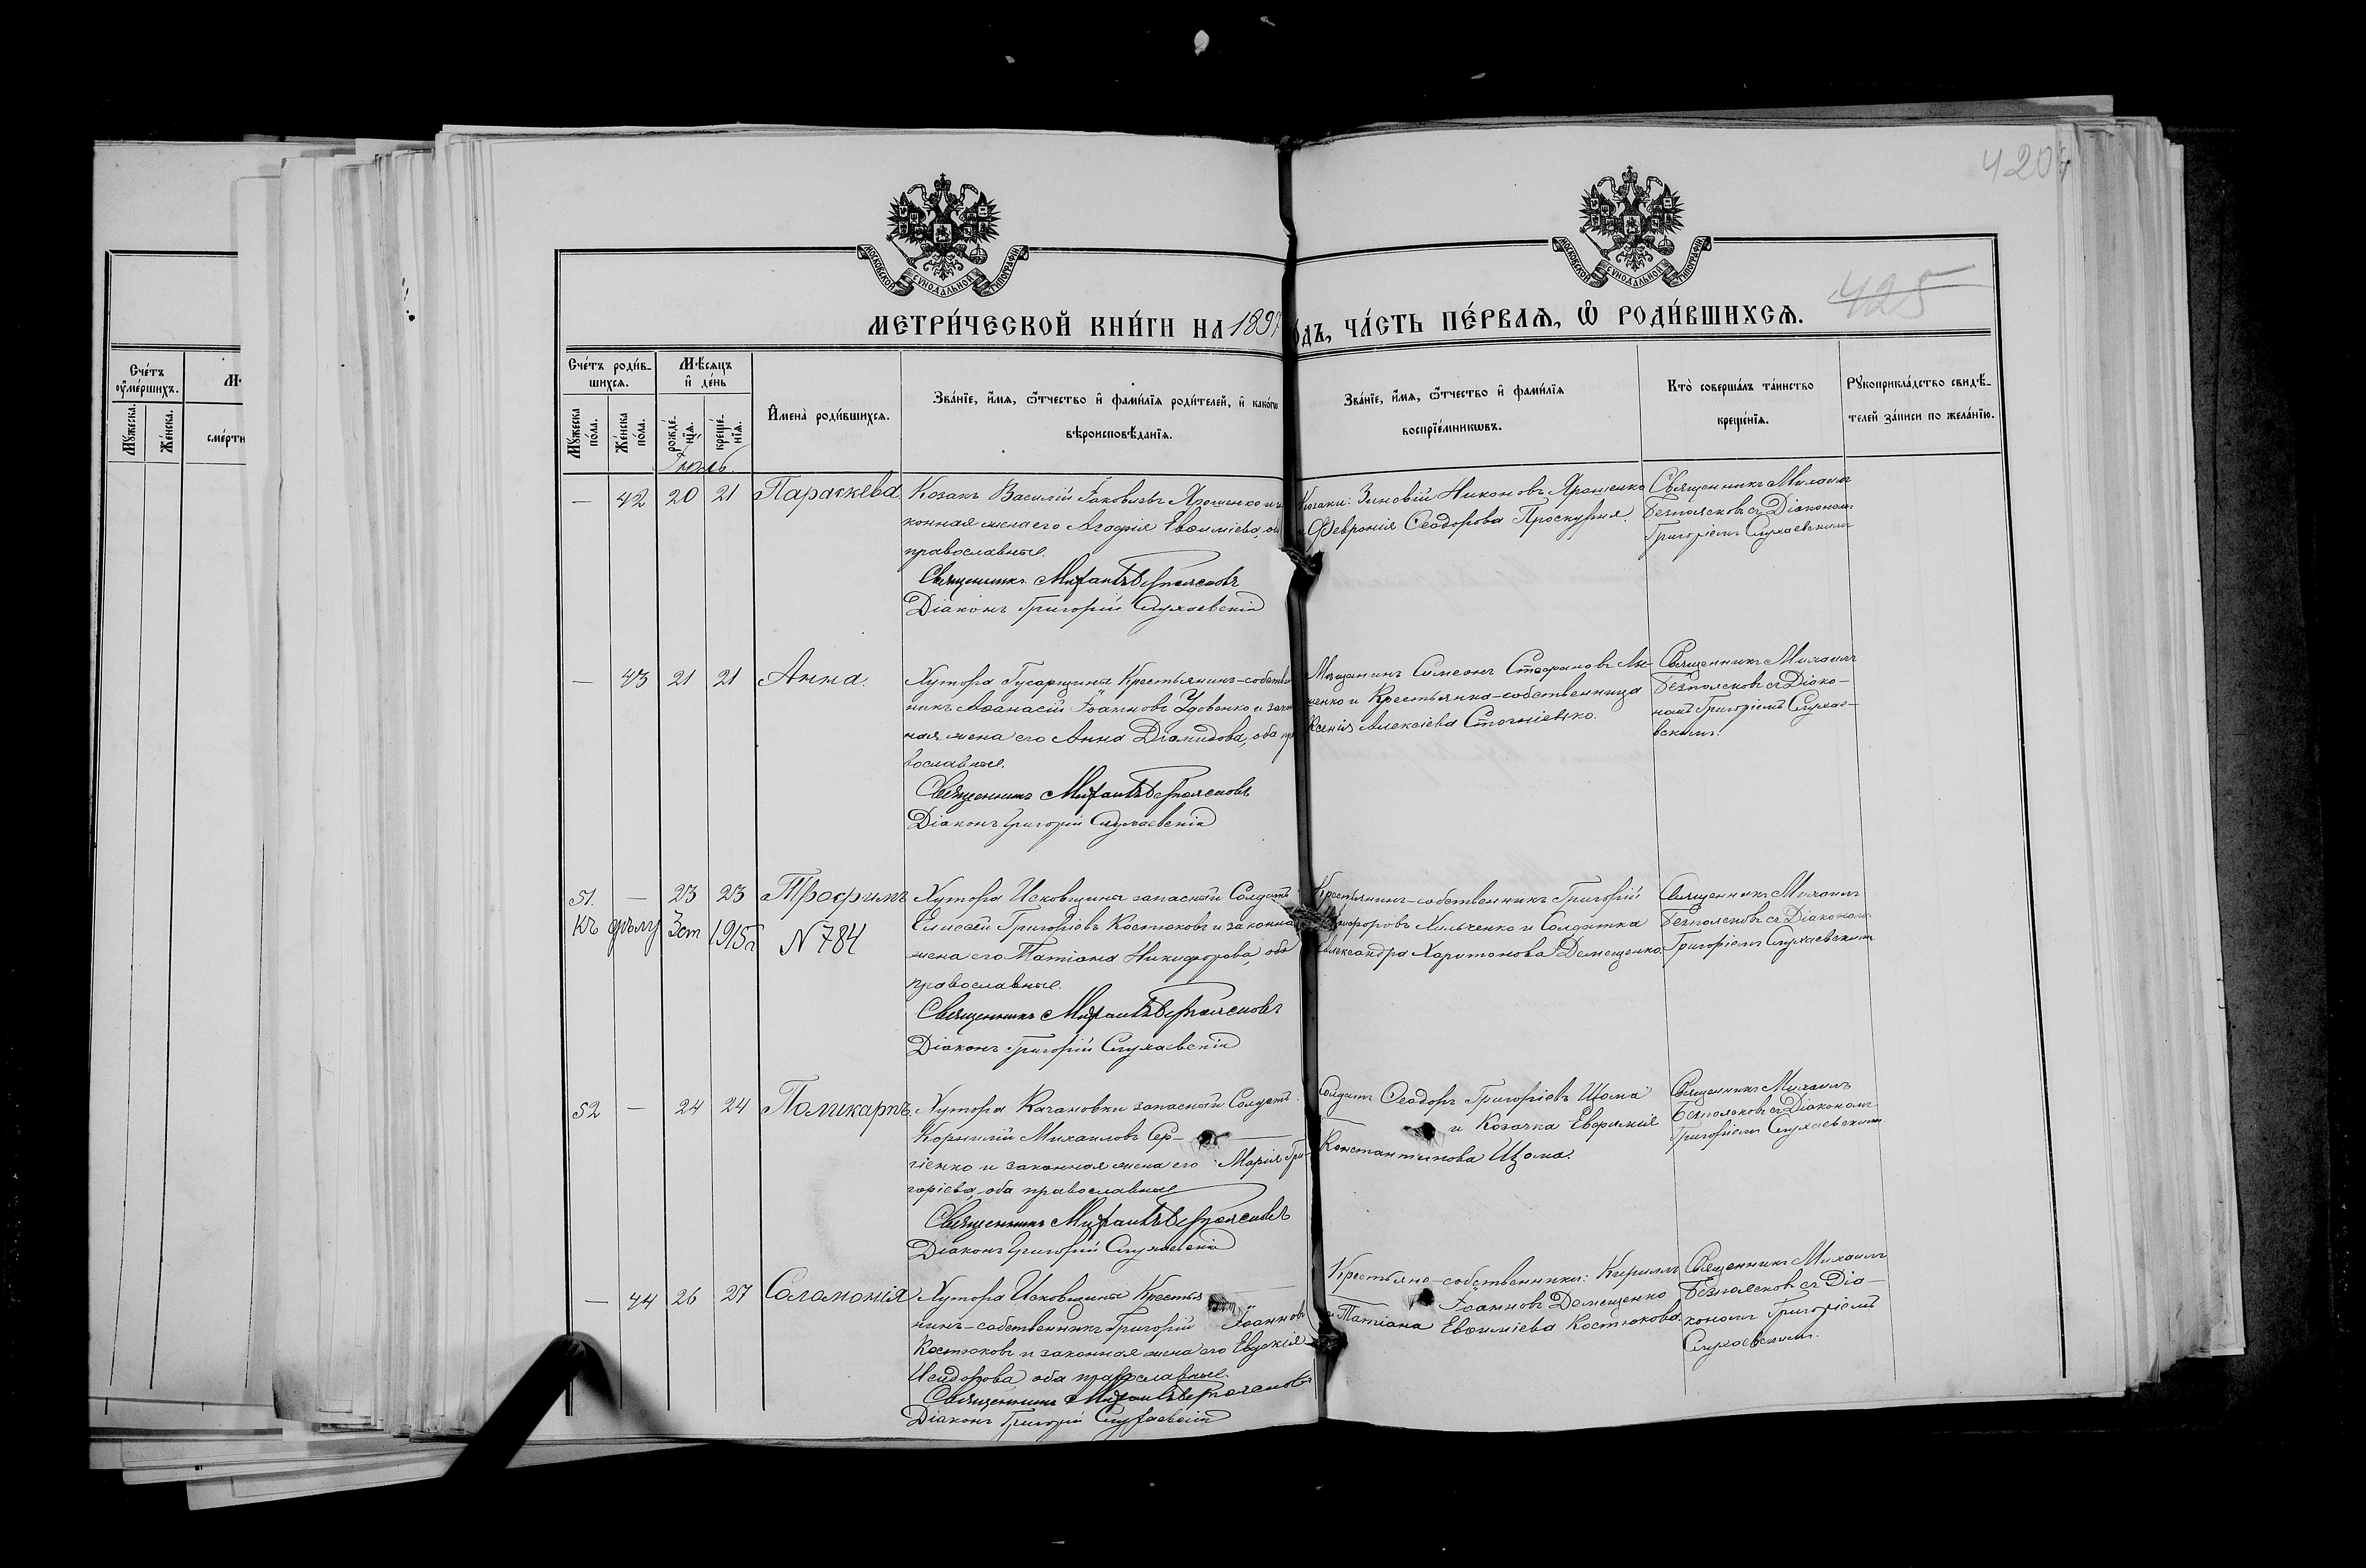 420
425
МОСКОВСКОЙ СѴНОДАЛЬНОЙ ТИПОГРАФІИ
МОСКОВСКОЙ СѴНОДАЛЬНОЙ ТИПОГРАФІИ
МЕТРИ́ЧЕСКОЙ КНИ́ГИ НА 1897 ОДЪ, ЧА́СТЬ ПЕ́РВАѦ, Ѿ РОДИ́ВШИХСѦ.
Сче́тъ оумершихъ.
Мꙋжеска.
Же́нска.
сме́рти
Сче́тъ роди́в-
шихсѧ.
Мꙋжеска по́ла.
Же́нска по́ла.
Мѣсѧцъ
и҆ де́нь
рожде́-
нїѧ.
креще́-
нїѧ.
И҆мена̀ роди́вшихсѧ.
Зва́нїе, и҆́мѧ, ѻ҆́тчество и҆ фами́лїѧ роди́телей, и҆ како́гѡ
вѣроисповѣ́данїѧ.
Зва́нїе, и҆́мѧ, ѻ҆́тчество и҆ фами́лїѧ
воспрїе́мникѡвъ.
Кто̀ соверша́лъ та́инство
креще́нїѧ.
Рꙋкоприкла́дство свидѣ́-
телей за́писи по жела́нїю.
Іюль.
— 42 20 21 Параскева.
Козакъ Василій Іаковлевъ Ярошенко и за
конная жена его Агафія Евѳиміева, оба
православные.
Священникъ Михаилъ Безпоясковъ
Діаконъ Григорій Слухаевскій
Козаки: Зиновій Никоновъ Ярошенко
и Февронія Ѳеодорова Проскурня.
Священникъ Михаилъ
Безпоясковъ съ Діакономъ
Григоріемъ Слухаевскимъ
— 43 21 21 Анна.
Хутора Гусарщины Крестьянинъ-собствен
никъ Аѳанасій Іоанновъ Удовенко и закон
ная жена его Анна Діомидова, оба пра
вославные.
Священникъ Михаилъ Безпоясковъ
Діаконъ Григорій Слухаевскій
Мѣщанинъ Симеонъ Стефановъ
шенко и Крестьянка-собственница
Ксенія Алексіева
Священникъ Михаилъ
Безпоясковъ съ Діако-
номъ Григоріемъ Слухае-
вскимъ.
51. — 23 23 Трофимъ
Къ дѣлу 3 ст 1915 г N 784
Хутора Исковщины запасный Солдатъ
Елисей Григоріевъ Костюковъ и законная
жена его Татіана Никифорова, оба
православные.
Священникъ Михаилъ Безпоясковъ
Діаконъ Григорій Слухаевскій
Крестьянинъ-собственникъ Григорій
Никифоровъ Хильченко и Солдатка
Александра Харитонова Демещенко.
Священникъ Михаилъ
Безпоясковъ съ Діакономъ
Григоріемъ Слухаевскимъ
52 — 24 24 Поликарпъ.
Хутора Качановки запасный Солдатъ
Корнилій Михаиловъ Сер-
гіенко и законная жена его Марія Гри-
горіева, оба православные
Священникъ Михаилъ Безпоясковъ
Діаконъ Григорій Слухаевскій
Солдатъ Ѳеодоръ Григоріевъ Шома
и Козачка Евфимія
Константинова Шома.
Священникъ Михаилъ
Безпоясковъ съ Діакономъ
Григоріемъ Слухаевскимъ
— 44 26 27 Соломонія
Хутора Исковщины Крестья
нинъ-собственникъ Григорій Іоанновъ
Костюковъ и законная жена его Евдокія
Исидорова оба православные.
Священникъ Михаилъ Безпоясковъ
Діаконъ Григорій Слухаевскій
Крестьяне-собственники: Кириллъ
Іоанновъ Демещенко
и Татіана Евѳиміева Костюкова.
Священникъ Михаилъ
Безпоясковъ съ Діа-
кономъ Григоріемъ
Слухаевскимъ.